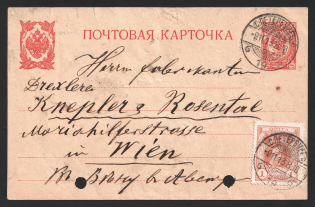 ПОЧТОВАЯ КАРТОЧКА
Herrn Fabrikanten
Drexler
Knepler & Rosental
Mariahilferstrasse
in Wien
Въ Вѣну въ
1